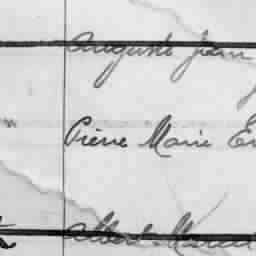 Auguste Jean
Pierre Marie
Albert Marcel